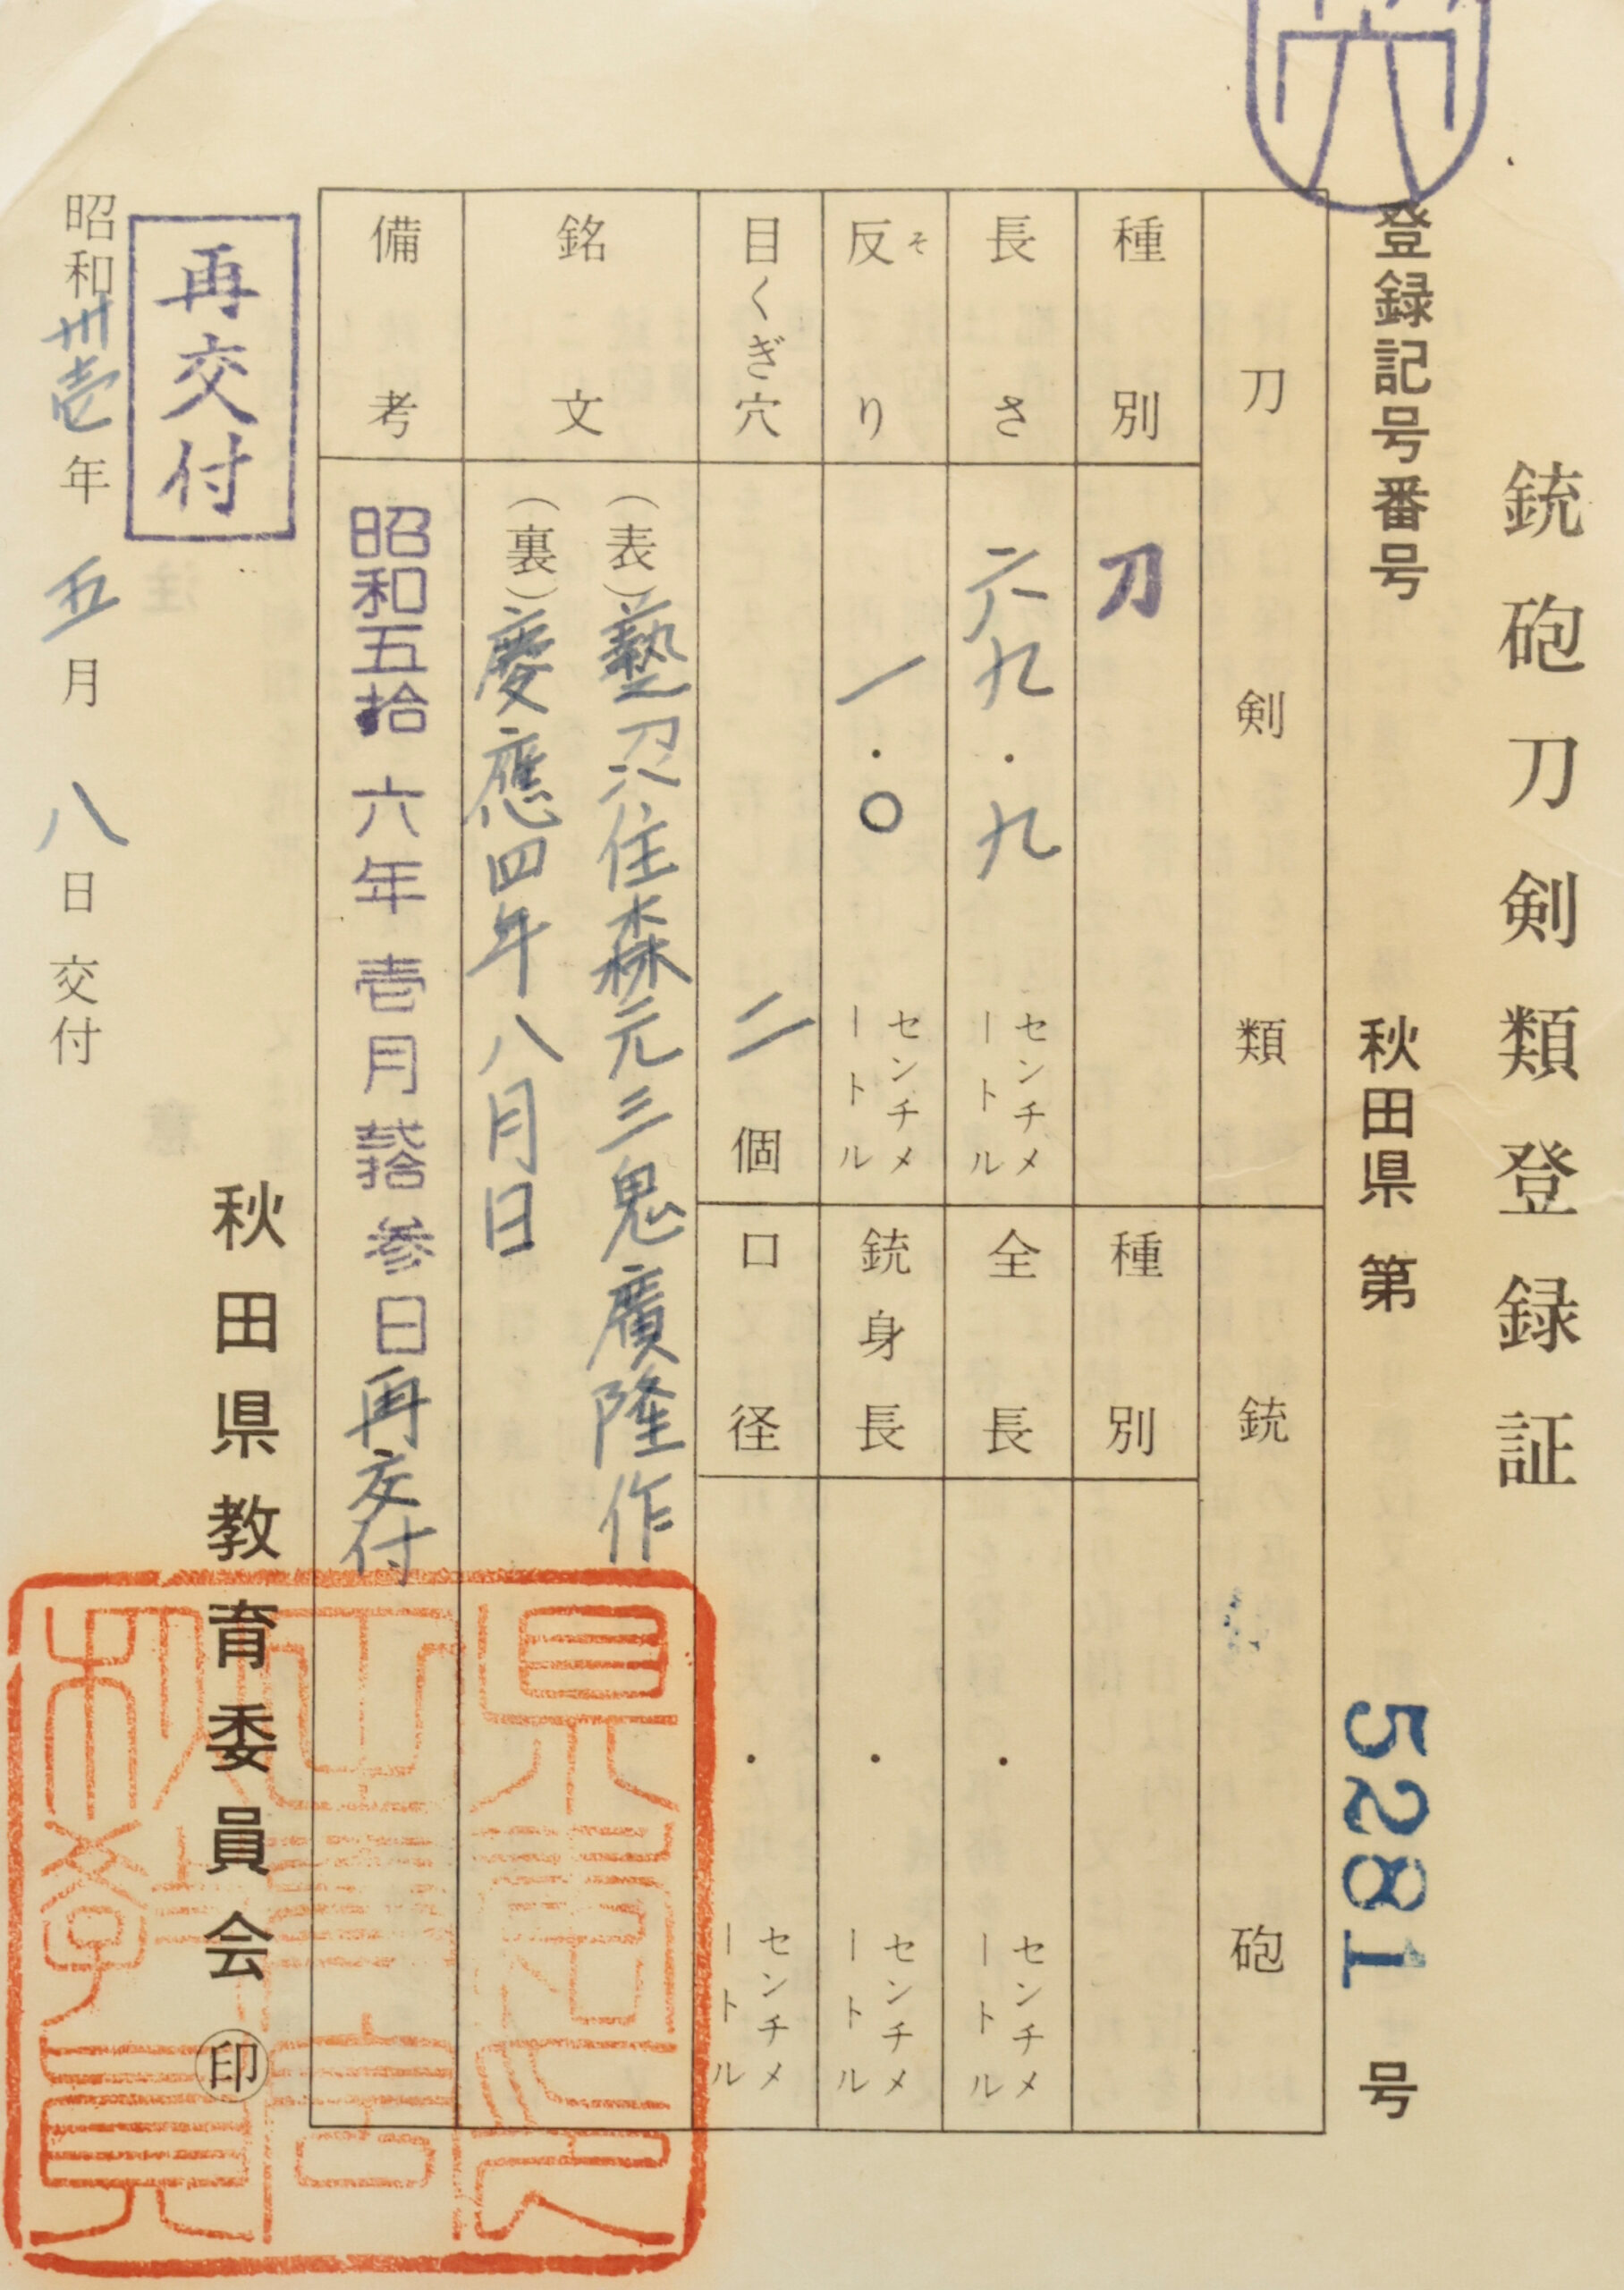 銃砲刀剣類登録証
登録記号番号 秋田県 第 5281 号
刀剣類
種別 刀
長さ 六九・九 センチメートル
反り そ 一・〇 センチメートル
目くぎ穴 二 個
銃砲
種別
全長 ・ センチメートル
銃身長 ・ センチメートル
口径 ・ センチメートル
銘文
(表)藝刕住森元三鬼廣隆作
(裏)慶應四年八月日
備考
昭和五拾六年壱月弐拾参日再交付
再交付
昭和卅壱年五月八日交付
秋田県教育委員会 印